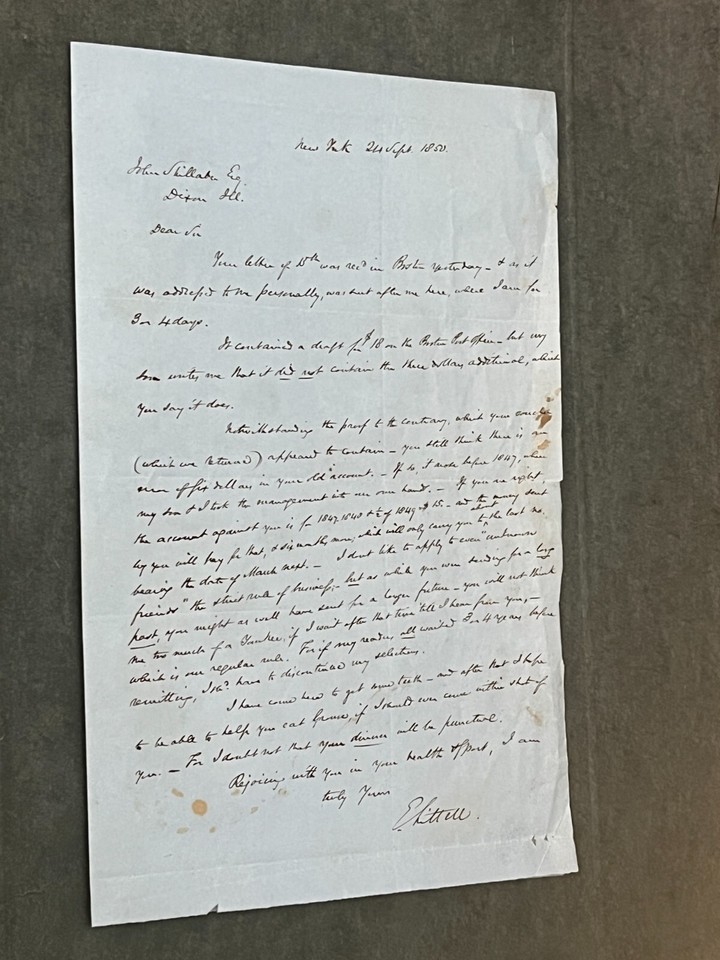 New York 24 Sept. 1850.
John Shillaber Esq
Dixon Ill.
Dear Sir
Your letter of 10th was recd in Boston yesterday – & as it
was addressed to me personally, was sent after me here, where I am for
3 or 4 days.
It contained a draft for $18 on the Boston Post Office – but my
son writes me that it did not contain the three dollars additional, which
you say it does.
Notwithstanding the proof to the contrary, which your
(which we returned) appeared to contain – you still think there is an
error of six dollars in your old account. – If so, it arose before 1847, when
my son & I took the management into our own hands. – If you are right,
the account against you is for 1847, 1848 & ½ of 1849 $15. – and the money sent
by you will pay for that, & six months more, which will only carry you to about the last no.
bearing the date of March next. – I don't like to apply to even "unknown
friends" the strict rule of business; – but as while you were sending for a long
past, you might as well have sent for a longer future – you will not think
me too much of a Yankee, if I wait after that time 'till I hear from you, –
which is our regular rule. For if my readers all waited 3 or 4 years before
remitting, I shd. have to discontinue my selections.
I have come here to get some teeth – and after that I hope
to be able to help you eat Grouse, if I should ever come within shot of
you. – For I doubt not that your dinner will be punctual.
Rejoicing with you in your health & sport, I am
truly Yours
E. Littell.